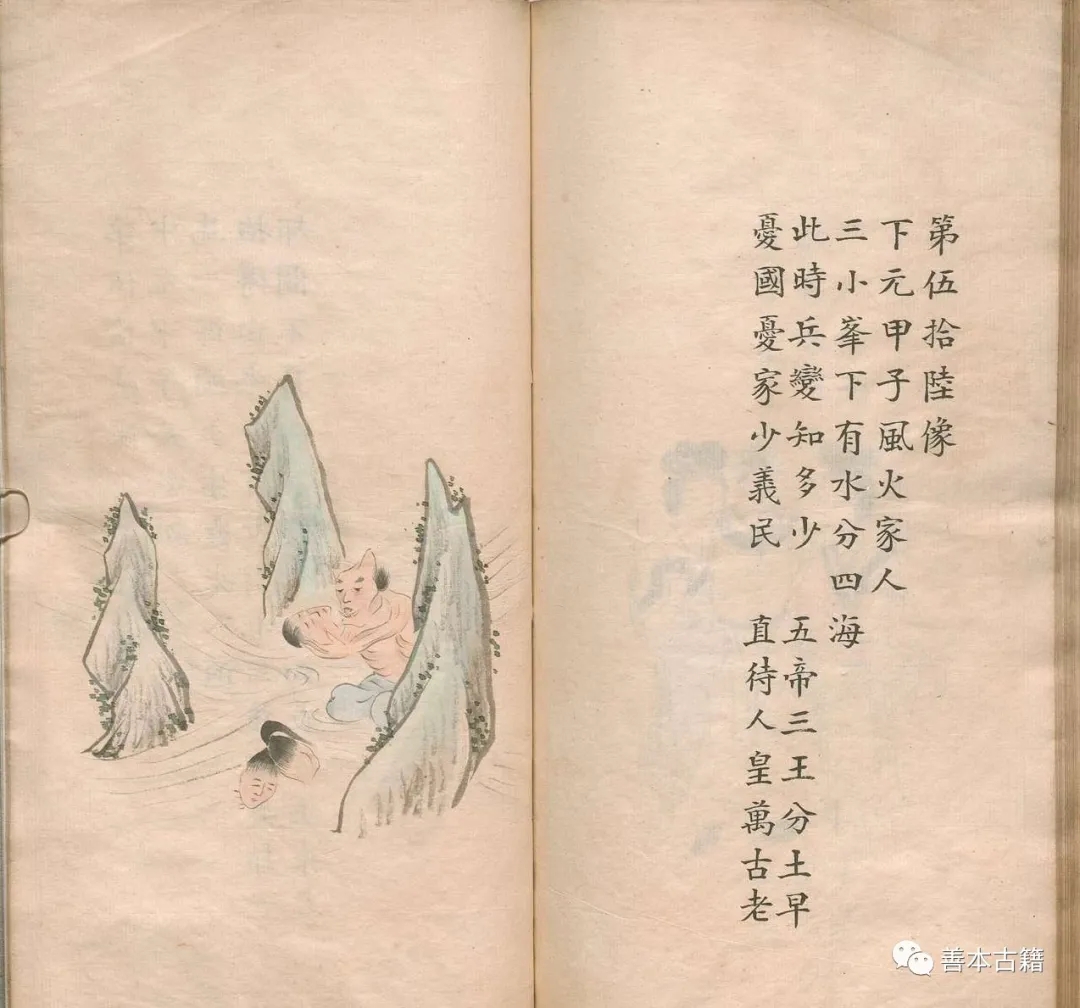 第伍拾陸像
下元甲子風火家人
三小峯下有水分四海
此時兵變知多少　五帝三王分土早
憂國憂家少義民　直待人皇萬古老
善本古籍